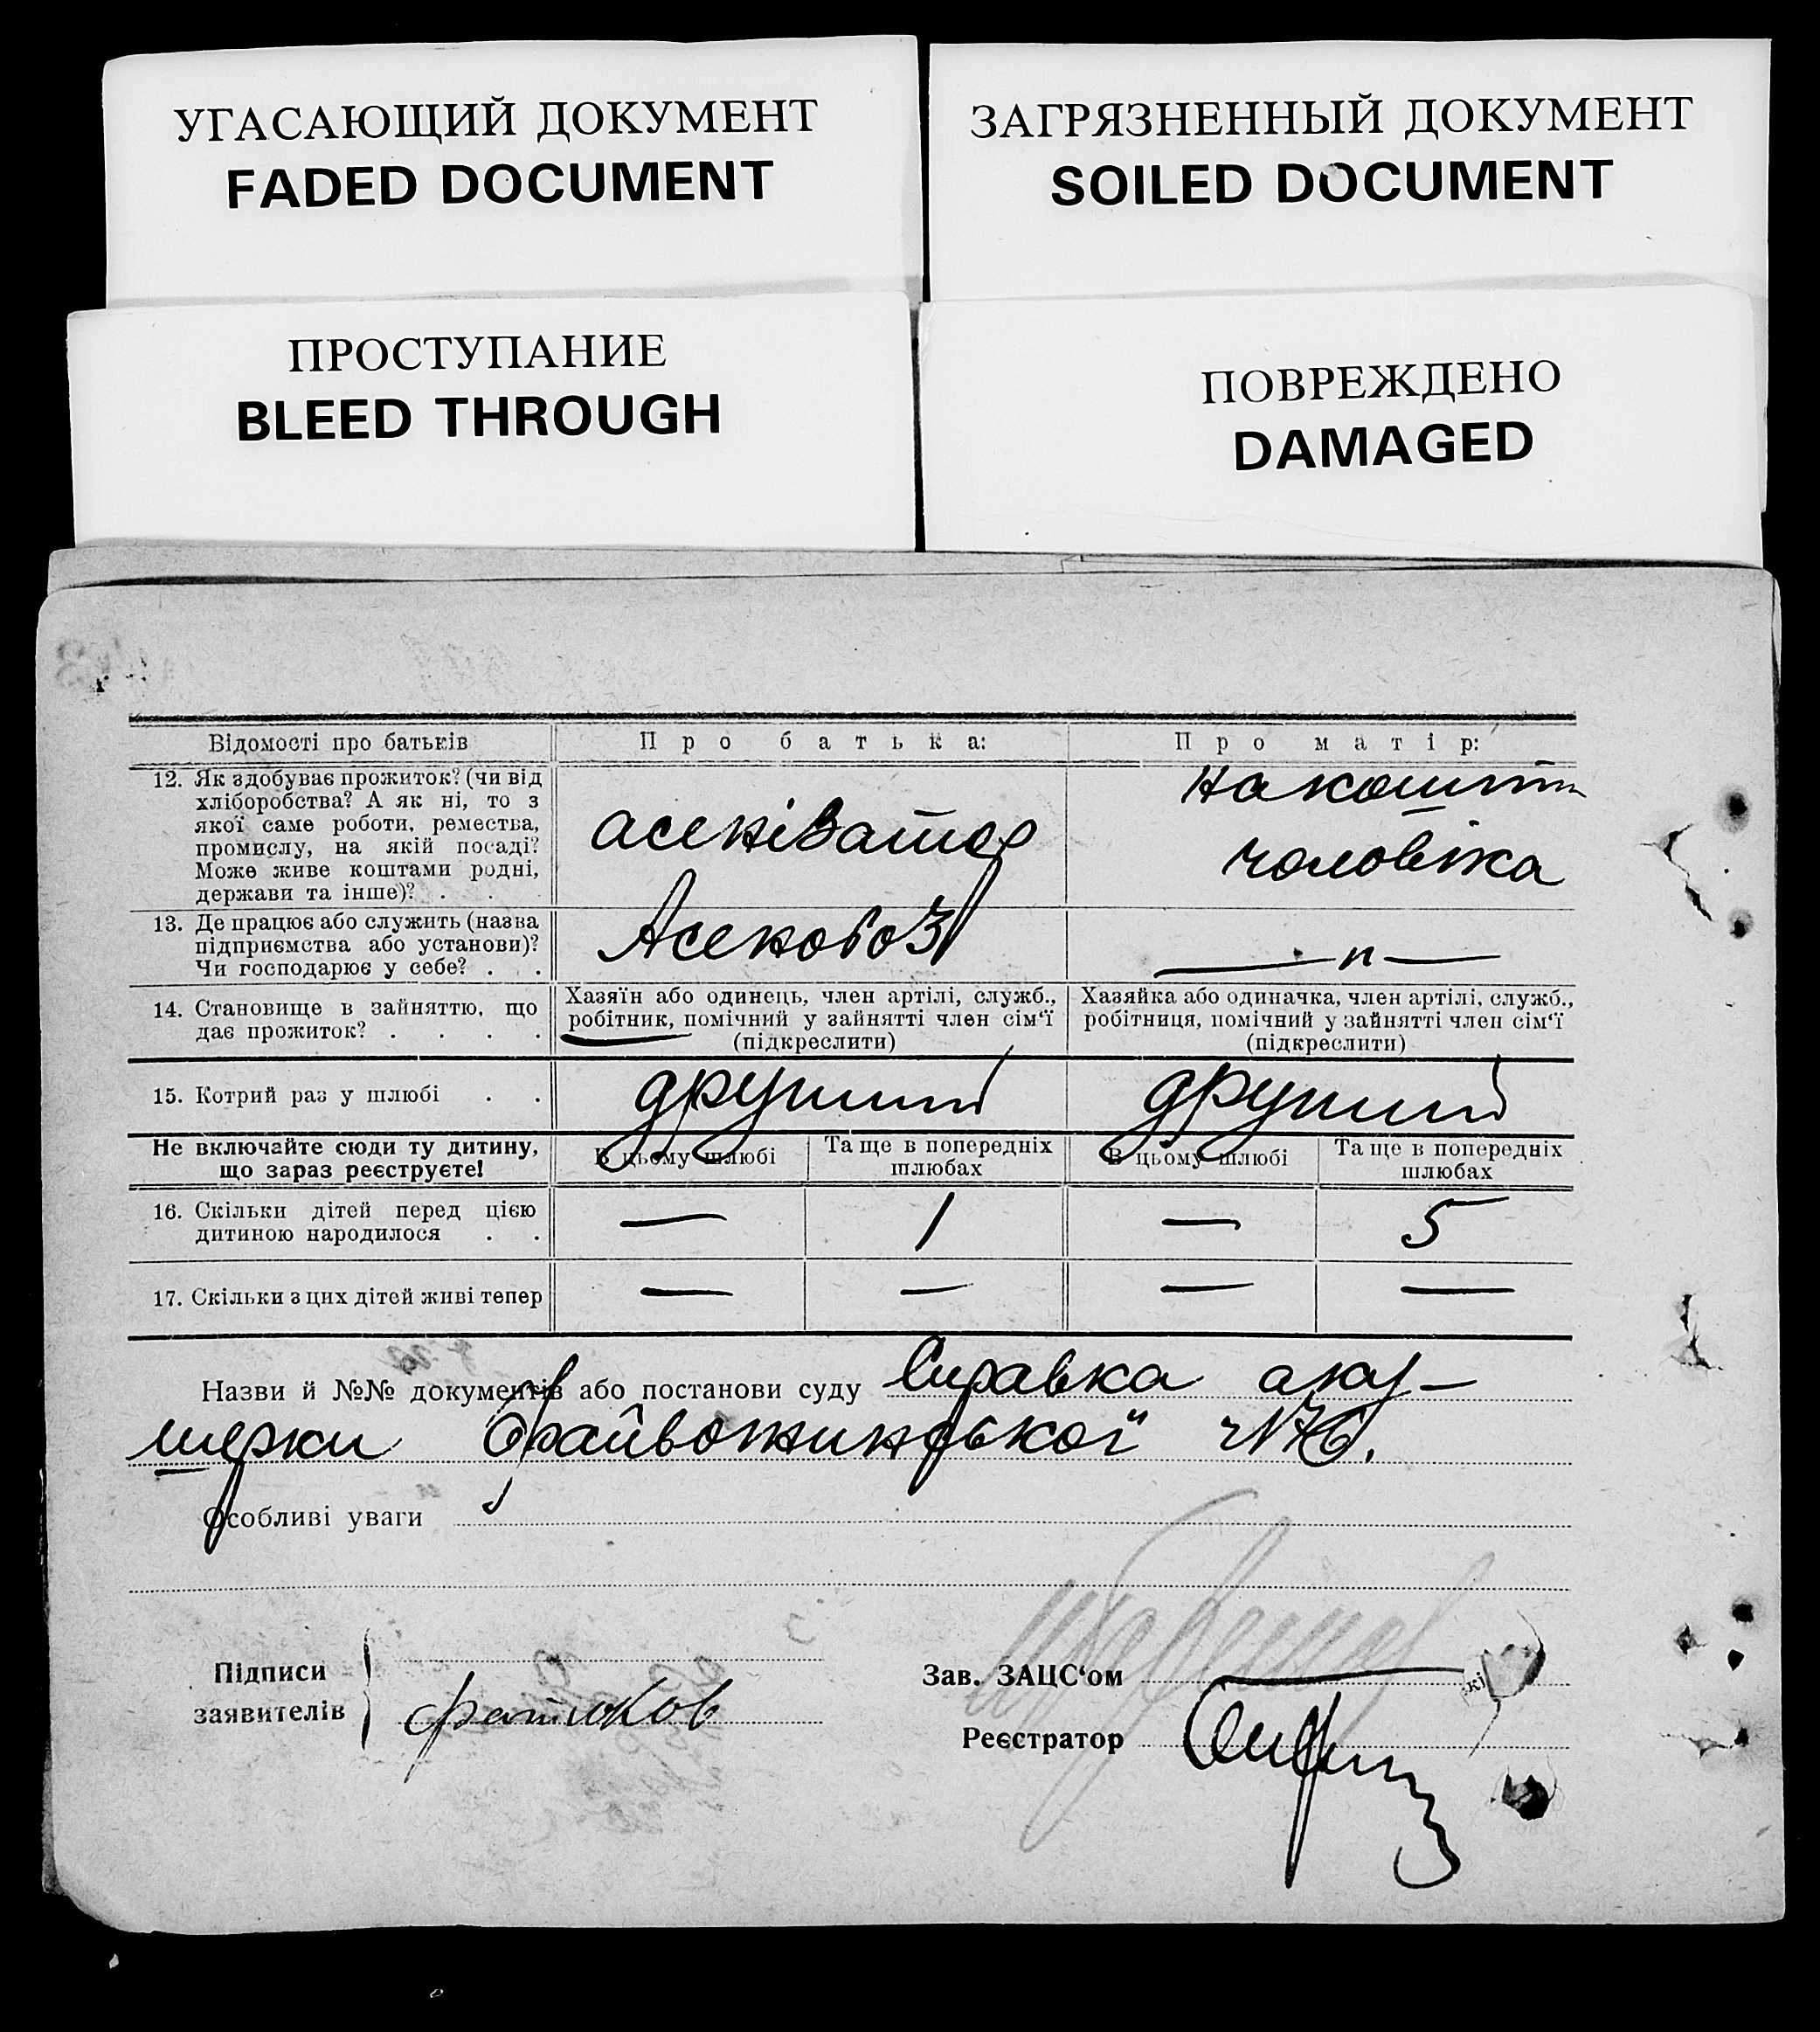 УГАСАЮЩИЙ ДОКУМЕНТ
FADED DOCUMENT
ЗАГРЯЗНЕННЫЙ ДОКУМЕНТ
SOILED DOCUMENT
ПРОСТУПАНИЕ
BLEED THROUGH
ПОВРЕЖДЕНО
DAMAGED
Відомості про батьків
Про батька:
Про матір:
12. Як здобуває прожиток? (чи від
хліборобства? А як ні, то з
якої саме роботи, ремества,
промислу, на якій посаді?
Може живе коштами родні,
держави та інше)? . .
асенізатор
на кошти
чоловіка
13. Де працює або служить (назва
підприємства або установи)?
Чи господарює у себе? . .
Асенобоз
— п —
14. Становище в зайняттю, що
дає прожиток? . . . .
Хазяїн або одинець, член артілі, служб.,
робітник, помічний у зайнятті член сім'ї
(підкреслити)
Хазяйка або одиначка, член артілі, служб.,
робітниця, помічний у зайнятті член сім'ї
(підкреслити)
15. Котрий раз у шлюбі . .
другий
другий
Не включайте сюди ту дитину,
що зараз реєструєте!
В цьому шлюбі
Та ще в попередніх
шлюбах
В цьому шлюбі
Та ще в попередніх
шлюбах
16. Скільки дітей перед цією
дитиною народилося . .
— 1 — 5
17. Скільки з цих дітей живі тепер
— — — —
Назви й №№ документів або постанови суду Справка аку-
шерки
Особливі уваги
Підписи
заявителів
Зав. ЗАЦС'ом
Реєстратор